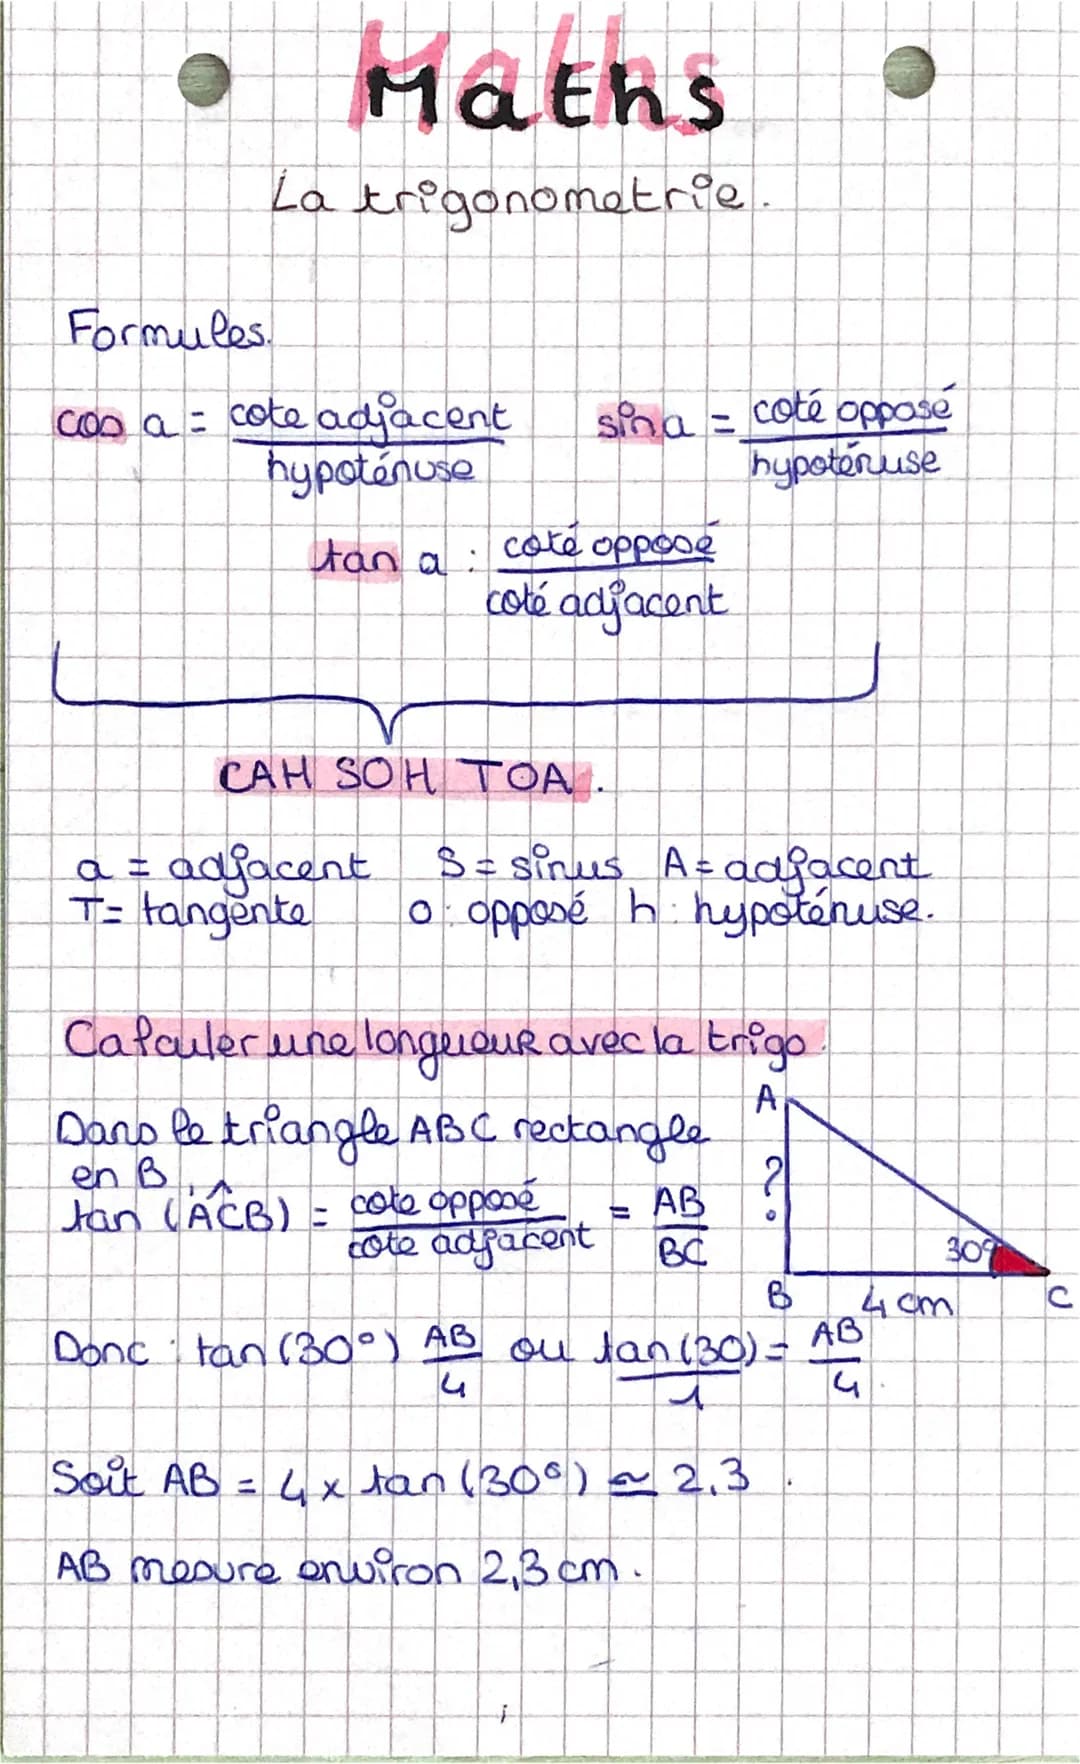 Maths
La trigonometrie.
Formules.
cos a = cote adjacent / hypoténuse    sin a = coté opposé / hypoténuse
tan a : coté opposé / coté adjacent
CAH SOH TOA.
a = adjacent    S = sinus    A = adjacent
T = tangente    o : opposé    h : hypoténuse.
Calculer une longueur avec la trigo.
Dans le triangle ABC rectangle
en B,
tan (ACB) = cote opposé / cote adjacent = AB / BC
A
?
30°
B    4 cm    C
Donc : tan (30°) AB / 4 ou tan (30) / 1 = AB / 4.
Soit AB = 4 x tan (30°) ≃ 2,3.
AB mesure environ 2,3 cm.